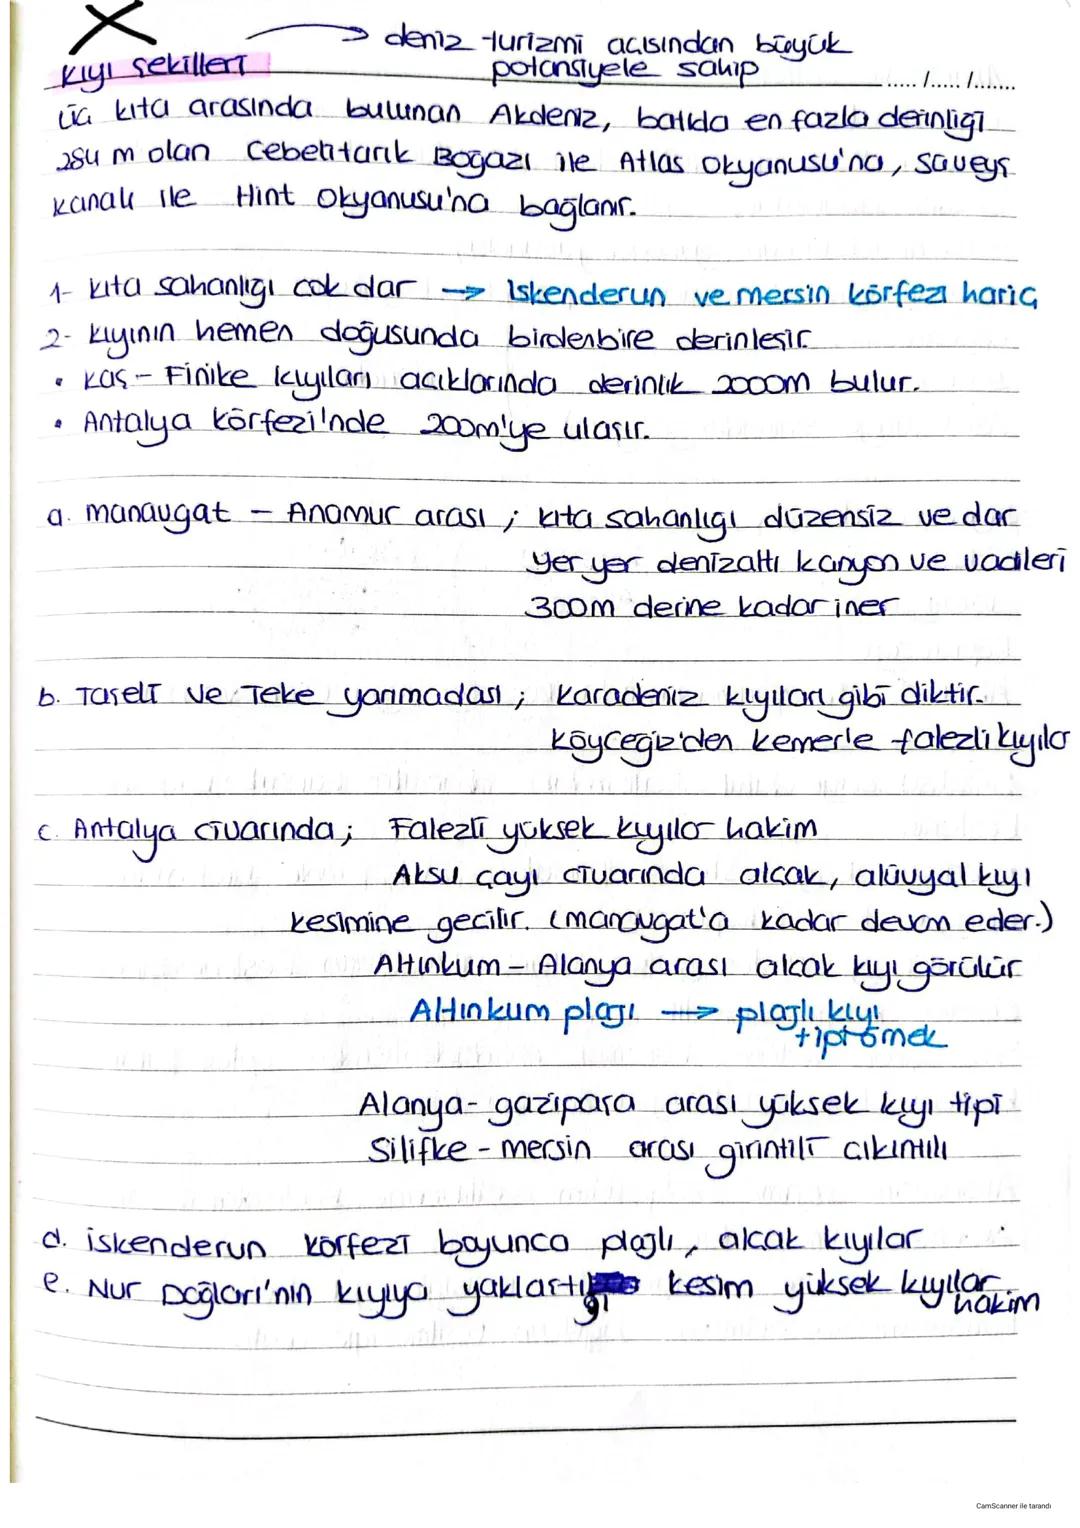 deniz turizmi açısından büyük
potansiyele sahip
kıyı şekilleri
...../...../.......
üç kıta arasında bulunan Akdeniz, batıda en fazla derinliği
284 m olan Cebelitarık Boğazı ile Atlas Okyanusu'na, Süveyş
kanalı ile Hint Okyanusu'na bağlanır.
1- kıta sahanlığı çok dar → İskenderun ve mersin körfezi hariç
2- kıyının hemen doğusunda birdenbire derinleşir.
• Kaş - Finike kıyıları açıklarında derinlik 2000m bulur.
• Antalya körfezi'nde 200m'ye ulaşır.
a. manavgat - Anamur arası ; kıta sahanlığı düzensiz ve dar
yer yer denizaltı kanyon ve vadileri
300m derine kadar iner
b. Taşeli ve Teke yarımadası ; Karadeniz kıyıları gibi diktir.
köyceğiz'den kemer'e falezli kıyılar
c. Antalya civarında ; Falezli yüksek kıyılar hakim
Aksu çayı civarında alçak, alüvyal kıyı
kesimine geçilir. (manavgat'a kadar devam eder.)
Altınkum - Alanya arası alçak kıyı görülür
Altınkum plajı → plajlı kıyı
tipi örnek
Alanya - gazipaşa arası yüksek kıyı tipi
Silifke - mersin arası girintili çıkıntılı
d. iskenderun körfezi boyunca plajlı, alçak kıyılar
e. Nur Dağları'nın kıyıya yaklaştığı kesim yüksek kıyılar
hakim
CamScanner ile tarandı